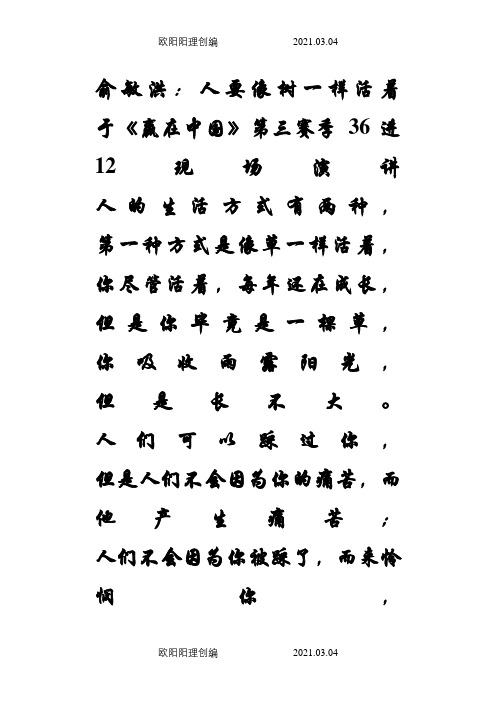 欧阳阳理创编 2021.03.04
俞敏洪：人要像树一样活着
于《赢在中国》第三赛季 36 进
12 现场演讲
人的生活方式有两种，
第一种方式是像草一样活着，
你尽管活着，每年还在成长，
但是你毕竟是一棵草，
你吸收雨露阳光，
但是长不大。
人们可以踩过你，
但是人们不会因为你的痛苦，而
他产生痛苦；
人们不会因为你被踩了，而来怜
悯你，
欧阳阳理创编 2021.03.04